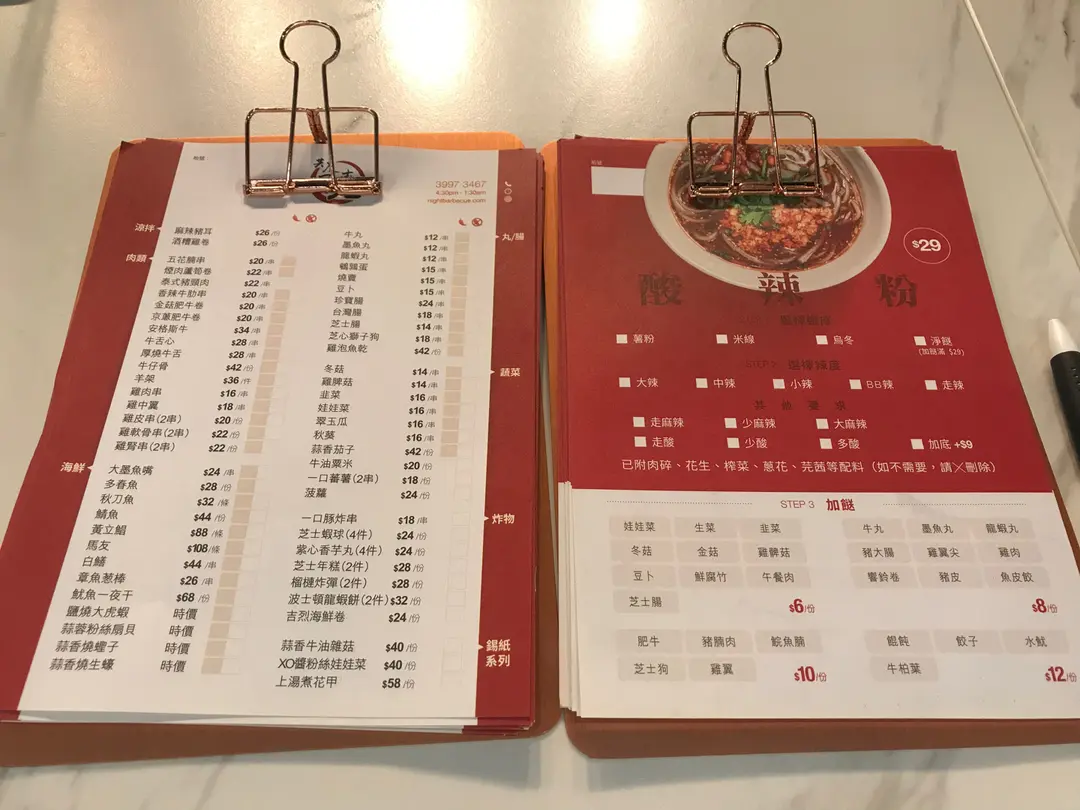 枱號
3997 3467
4:30pm - 1:30am
nightbarbecue.com
涼拌
麻辣豬耳 $26 /份
酒糟雞卷 $26 /份
肉類
五花腩串 $20 /串
煙肉蘆筍卷 $22 /串
泰式豬頸肉 $22 /串
香辣牛肋串 $20 /串
金菇肥牛卷 $20 /串
京蔥肥牛卷 $20 /串
安格斯牛 $34 /串
牛舌心 $28 /串
厚燒牛舌 $28 /串
牛仔骨 $42 /份
羊架 $36 /件
雞肉串 $16 /串
雞中翼 $18 /串
雞皮串(2串) $20 /份
雞軟骨串(2串) $22 /份
雞腎串(2串) $22 /份
海鮮
大墨魚嘴 $24 /串
多春魚 $28 /份
秋刀魚 $32 /條
鯖魚 $44 /份
黃立鯧 $88 /條
馬友 $108 /條
白鱔 $44 /串
章魚葱棒 $26 /串
魷魚一夜干 $68 /份
鹽燒大虎蝦 時價
蒜蓉粉絲扇貝 時價
蒜香燒蟶子 時價
蒜香燒生蠔 時價
丸/腸
牛丸 $12 /串
墨魚丸 $12 /串
龍蝦丸 $12 /串
鵪鶉蛋 $15 /串
燒賣 $15 /串
豆卜 $15 /串
珍寶腸 $24 /串
台灣腸 $18 /串
芝士腸 $14 /串
芝心獅子狗 $18 /串
雞泡魚乾 $42 /份
蔬菜
冬菇 $14 /串
雞髀菇 $14 /串
韭菜 $16 /串
娃娃菜 $16 /串
翠玉瓜 $16 /串
秋葵 $16 /串
蒜香茄子 $42 /份
牛油粟米 $20 /份
一口蕃薯(2串) $18 /份
菠蘿 $24 /份
炸物
一口豚炸串 $18 /串
芝士蝦球(4件) $24 /份
紫心香芋丸(4件) $24 /份
芝士年糕(2件) $28 /份
榴槤炸彈(2件) $28 /份
波士頓龍蝦餅(2件) $32 /份
吉烈海鮮卷 $24 /份
錫紙系列
蒜香牛油雜菇 $40 /份
XO醬粉絲娃娃菜 $40 /份
上湯煮花甲 $58 /份
枱號
$29
酸辣粉
薯粉 米線 烏冬 淨餸
(加餸滿 $29)
STEP 2 選擇辣度
大辣 中辣 小辣 BB辣 走辣
其他要求
走麻辣 少麻辣 大麻辣
走酸 少酸 多酸 加底 +$9
已附肉碎、花生、榨菜、蔥花、芫茜等配料(如不需要，請╳刪除)
STEP 3 加餸
娃娃菜 生菜 韭菜
冬菇 金菇 雞髀菇
豆卜 鮮腐竹 午餐肉
芝士腸
$6/份
牛丸 墨魚丸 龍蝦丸
豬大腸 雞翼尖 雞肉
響鈴卷 豬皮 魚皮餃
$8/份
肥牛 豬腩肉 鯇魚腩
芝士狗 雞翼
$10/份
餛飩 餃子 水魷
牛柏葉
$12/份